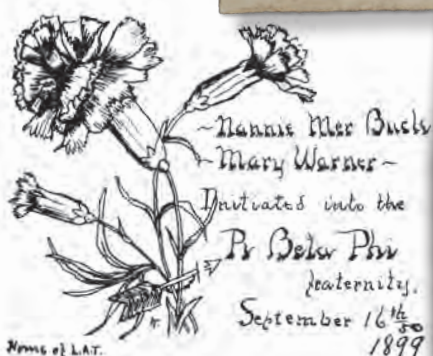 ~Nannie Mer Buck
~Mary Warner~
Initiated into the
Pi Beta Phi
fraternity.
September 16th
1899
Home of L.A.T.